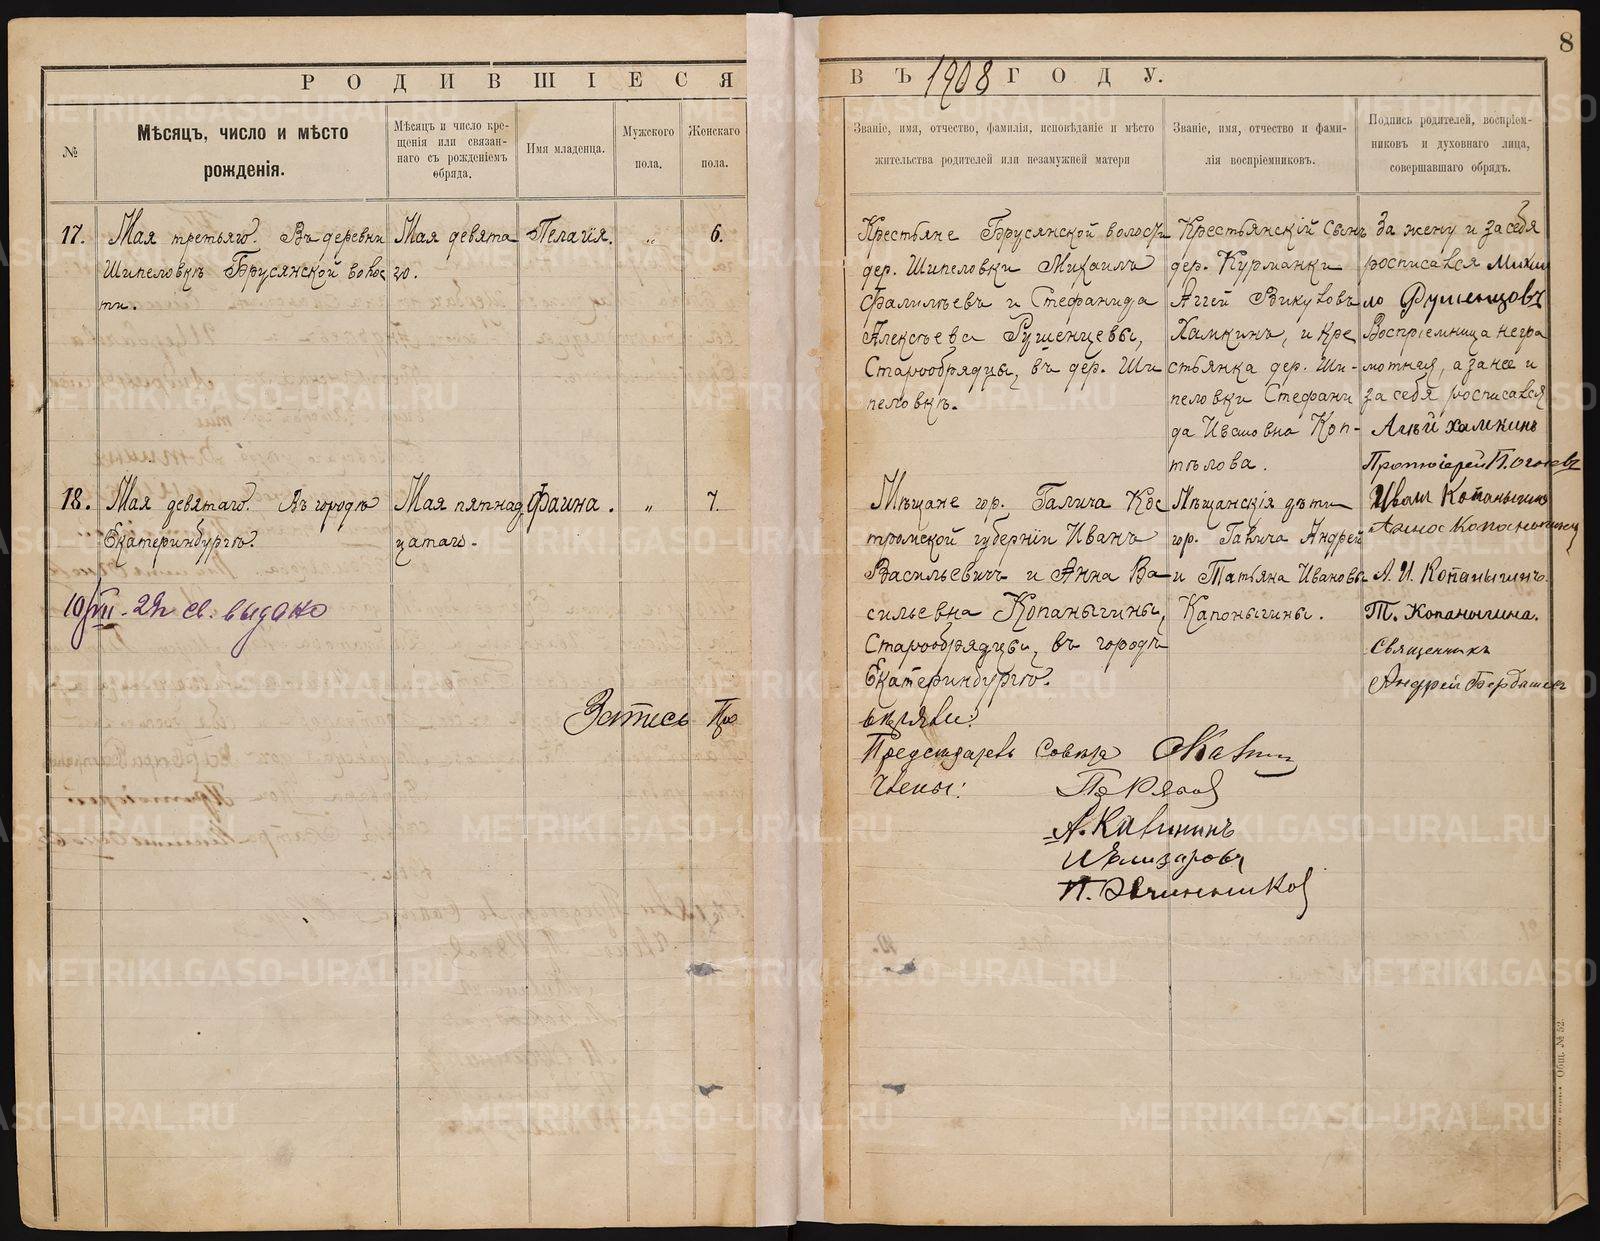 8
РОДИВШІЕСЯ
ВЪ 1908 ГОДУ.
№
Мѣсяцъ, число и мѣсто
рожденія.
Мѣсяцъ и число кре-
щенія или связан-
наго съ рожденіемъ
обряда.
Имя младенца.
Мужского
пола.
Женскаго
пола.
Званіе, имя, отчество, фамилія, исповѣданіе и мѣсто
жительства родителей или незамужней матери
Званіе, имя, отчество и фами-
лія воспріемниковъ.
Подпись родителей, воспріем-
никовъ и духовнаго лица,
совершавшаго обрядъ.
17.
Мая третьяго. Въ деревни
Шипеловкѣ Брусянской волос
ти.
Мая девята
го.
Пелагія.
„
6.
Крестьяне Брусянской волости
дер. Шипеловки Михаилъ
Фалилѣевъ и Стефанида
Алексѣева Рушенцевы,
Старообрядцы, въ дер. Ши
пеловкѣ.
Крестьянскій сынъ
дер. Курманки
Аггей Викуловъ
Хамкинъ, и кре
стьянка дер. Ши-
пеловки Стефани
да Ивановна Коп-
тѣлова.
За жену и за себя
росписался Михаи
ло Рушенцовъ
Воспріемница негра
мотная, а за нее и
за себя росписался
Агѣй Хамкинъ
Протоіерей П.
18.
Мая девятаго. Въ городѣ
Екатеринбургѣ.
Мая пятнад
цатаго.
Фаина.
„
7.
Мѣщане гор. Галича Кос
тромской губерніи Иванъ
Васильевичъ и Анна Ва
сильевна Копаныгины,
Старообрядцы, въ городѣ
Екатеринбургѣ.
Мѣщанскія дѣти
гор. Галича Андрей
и Татьяна Ивановы
Капоныгины.
Иванъ Копаныгинъ
А. И. Копаныгинъ.
Т. Копаныгина.
Священникъ
Андрей
10/VII - 27 св. выдано
Запись Про
вѣряли:
Предсѣдатель Совѣта
Члены:
А. Калининъ
И Елизаровъ
П. Овчинников
Общ. № 52.
METRIKI.GASO-URAL.RU